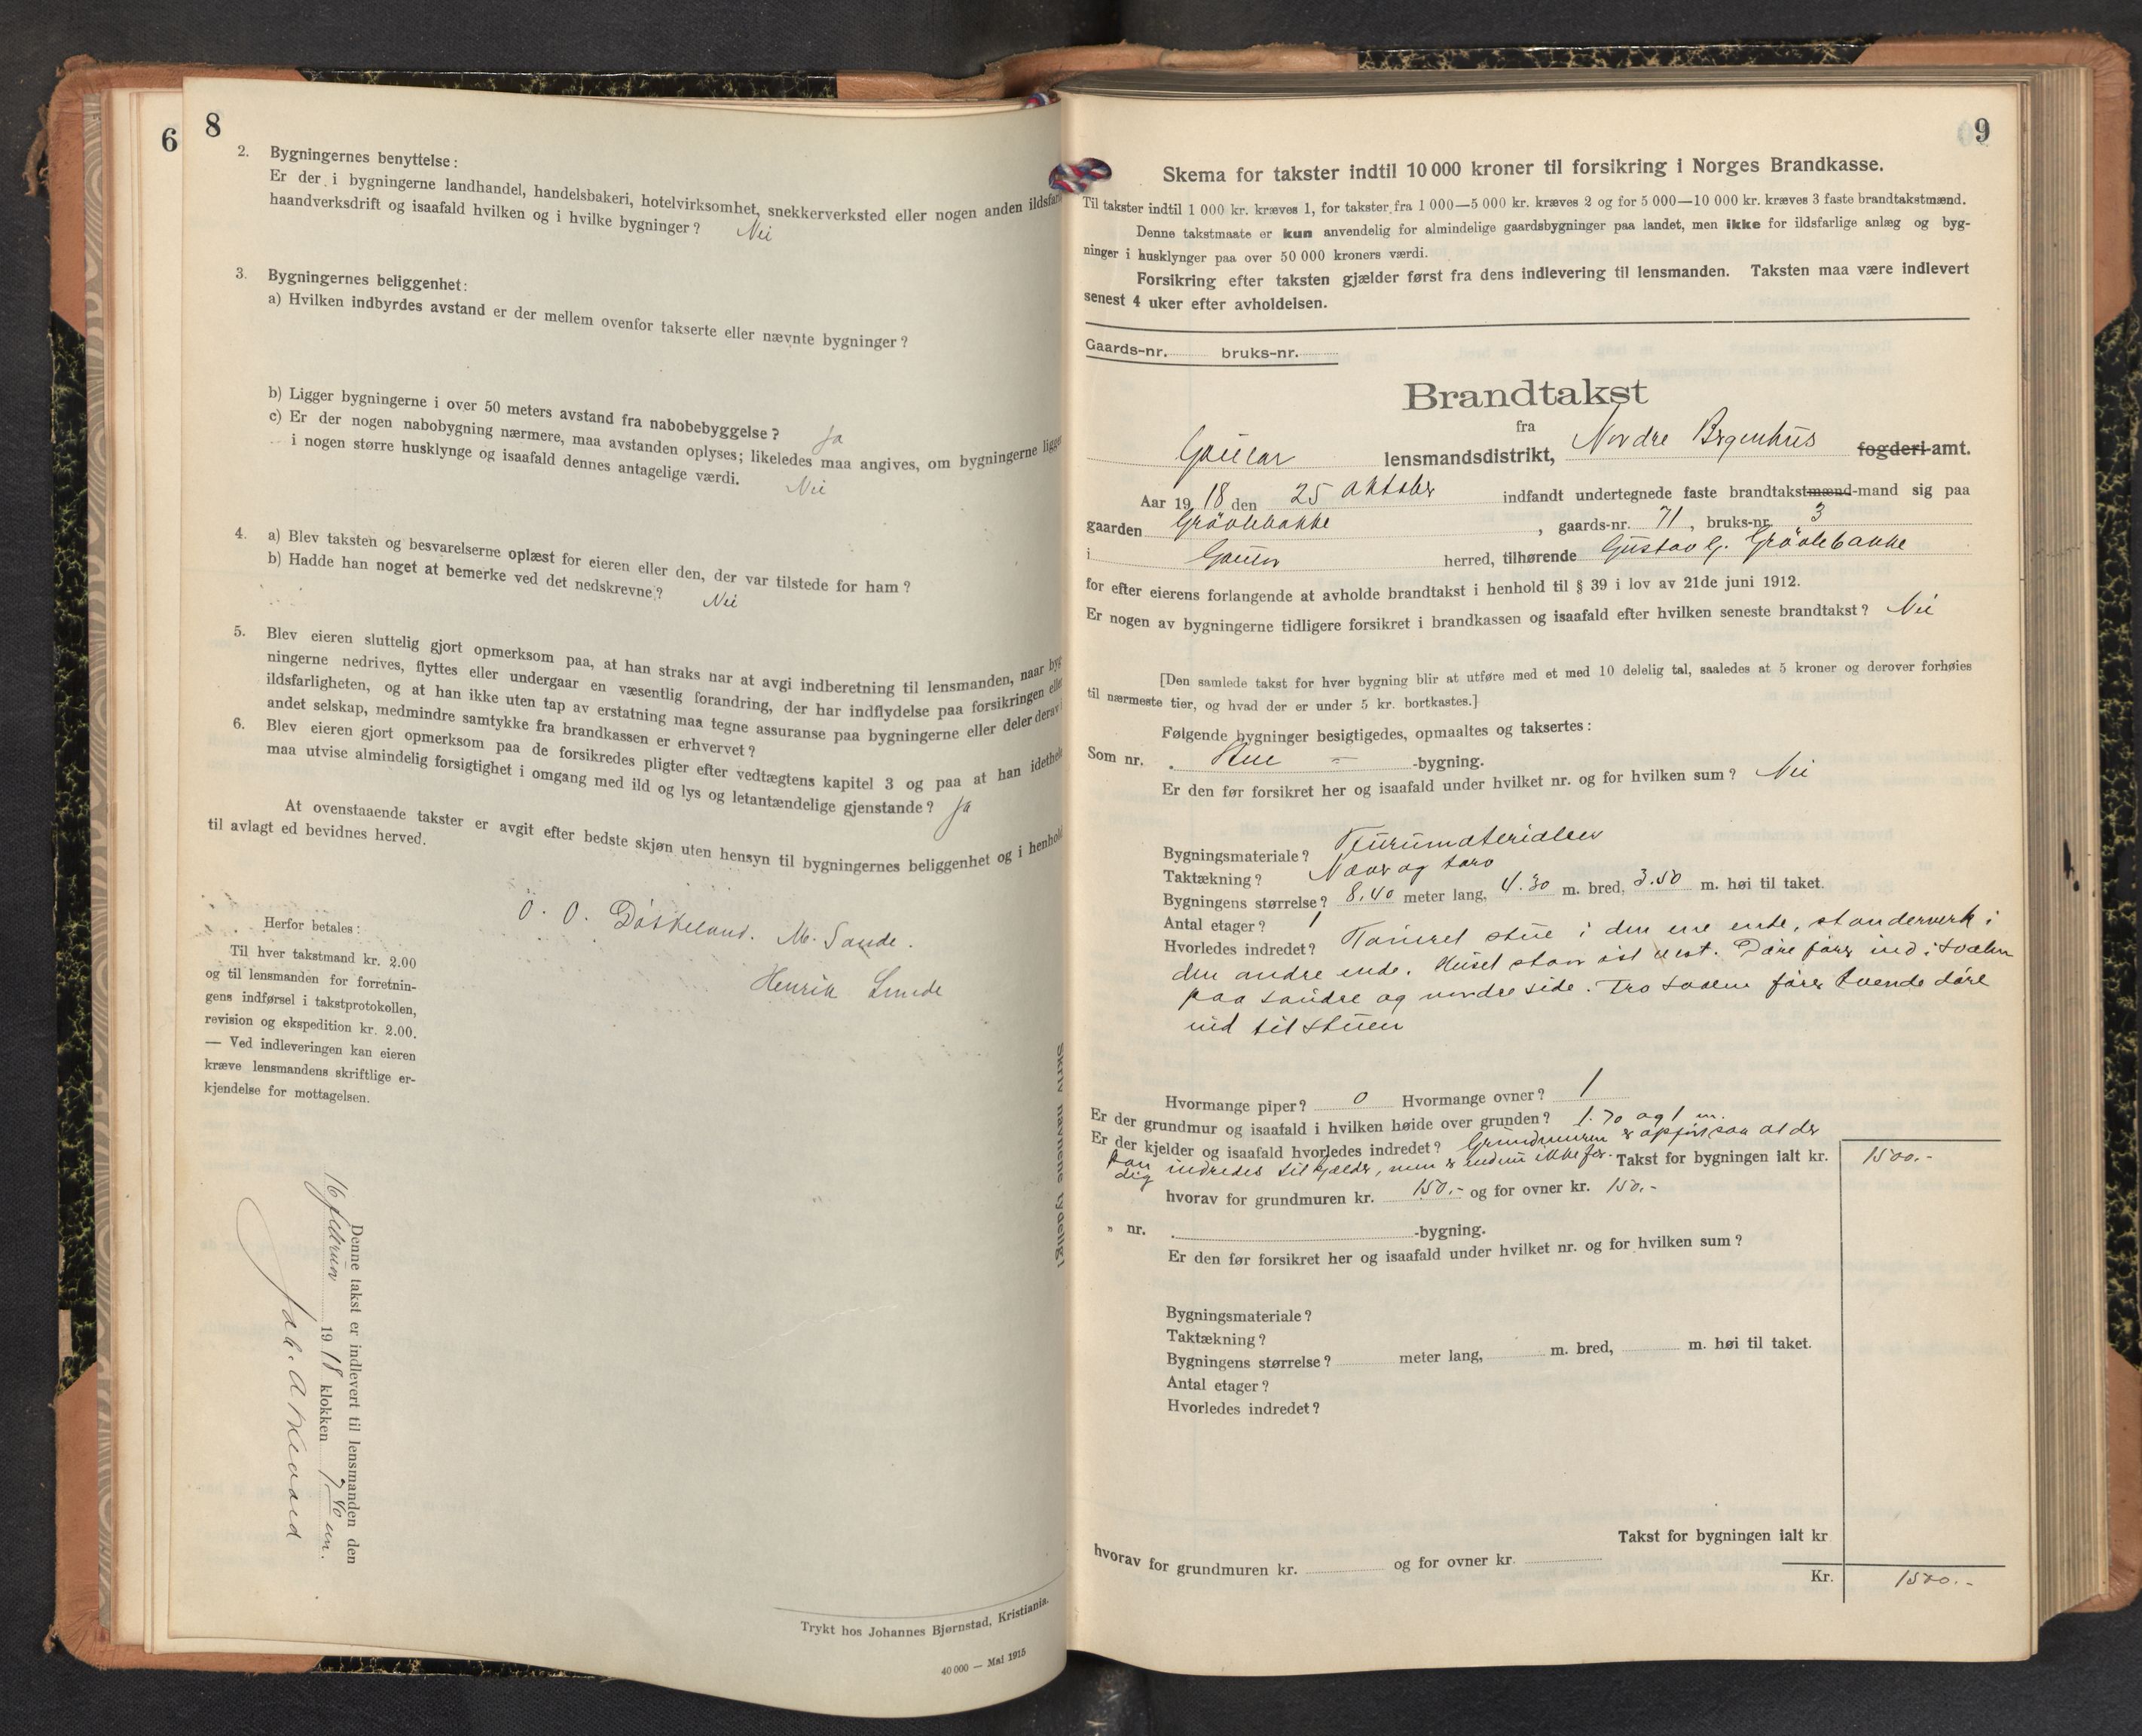 6
8
2. Bygningernes benyttelse:
Er der i bygningerne landhandel, handelsbakeri, hotelvirksomhet, snekkerverksted eller nogen anden ildsfarl
haandverksdrift og isaafald hvilken og i hvilke bygninger? Nei
3. Bygningernes beliggenhet:
a) Hvilken indbyrdes avstand er der mellem ovenfor takserte eller nævnte bygninger?
b) Ligger bygningerne i over 50 meters avstand fra nabobebyggelse? Ja
c) Er der nogen nabobygning nærmere, maa avstanden oplyses; likeledes maa angives, om bygningerne ligger
i nogen større husklynge og isaafald dennes antagelige værdi. Nei
4. a) Blev taksten og besvarelserne oplæst for eieren eller den, der var tilstede for ham?
b) Hadde han noget at bemerke ved det nedskrevne? Nei
5. Blev eieren sluttelig gjort opmerksom paa, at han straks har at avgi indberetning til lensmanden, naar byg
ningerne nedrives, flyttes eller undergaar en væsentlig forandring, der har indflydelse paa forsikringen eller
ildsfarligheten, og at han ikke uten tap av erstatning maa tegne assuranse paa bygningerne eller deler derav i
andet selskap, medmindre samtykke fra brandkassen er erhvervet?
6. Blev eieren gjort opmerksom paa de forsikredes pligter efter vedtægtens kapitel 3 og paa at han idethele
maa utvise almindelig forsigtighet i omgang med ild og lys og letantændelige gjenstande? Ja
At ovenstaaende takster er avgit efter bedste skjøn uten hensyn til bygningernes beliggenhet og i henhold
til avlagt ed bevidnes herved.
O. O. Döskeland. M. Sande.
Henrik Lunde
Herfor betales:
Til hver takstmand kr. 2.00
og til lensmanden for forretnin-
gens indførsel i takstprotokollen,
revision og ekspedition kr. 2.00.
— Ved indleveringen kan eieren
kræve lensmandens skriftlige er-
kjendelse for mottagelsen.
Denne takst er indlevert til lensmanden den
16 februar 1918 klokken 7.40 em.
Skriv navnene tydelig!
Trykt hos Johannes Bjørnstad, Kristiania.
40 000 — Mai 1915
9
Skema for takster indtil 10 000 kroner til forsikring i Norges Brandkasse.
Til takster indtil 1 000 kr. kræves 1, for takster fra 1 000—5 000 kr. kræves 2 og for 5 000—10 000 kr. kræves 3 faste brandtakstmænd.
Denne takstmaate er kun anvendelig for almindelige gaardsbygninger paa landet, men ikke for ildsfarlige anlæg og byg-
ninger i husklynger paa over 50 000 kroners værdi.
Forsikring efter taksten gjælder først fra dens indlevering til lensmanden. Taksten maa være indlevert
senest 4 uker efter avholdelsen.
Gaards-nr. bruks-nr.
Brandtakst
fra
Gaular lensmandsdistrikt, Nordre Bergenhus fogderi-amt.
Aar 1918 den 25 oktober indfandt undertegnede faste brandtakstmænd-mand sig paa
gaarden Grövlebakke, gaards-nr. 71, bruks-nr. 3
i Gaular herred, tilhørende Gustav G. Grövlebakke
for efter eierens forlangende at avholde brandtakst i henhold til § 39 i lov av 21de juni 1912.
Er nogen av bygningerne tidligere forsikret i brandkassen og isaafald efter hvilken seneste brandtakst? Nei
[Den samlede takst for hver bygning blir at utføre med et med 10 delelig tal, saaledes at 5 kroner og derover forhøies
til nærmeste tier, og hvad der er under 5 kr. bortkastes.]
Følgende bygninger besigtigedes, opmaaltes og taksertes:
Som nr. Stue -bygning.
Er den før forsikret her og isaafald under hvilket nr. og for hvilken sum? Nei
Bygningsmateriale? Furumaterialer
Taktækning? Næver og torv
Bygningens størrelse? 8.40 meter lang, 4.30 m. bred, 3.50 m. høi til taket.
Antal etager? 1
Hvorledes indredet? Tömret stue i den ene ende, standerverk i
den andre ende. Huset staar öst vest. Döre förer ind i svalen
paa söndre og nordre side. Fra svalen förer tvende döre
ind til stuen
Hvormange piper? 0 Hvormange ovner? 1
Er der grundmur og isaafald i hvilken høide over grunden? 1.70 og 1 m.
Er der kjelder og isaafald hvorledes indredet? Grundmuren er opfört saa at der
kan indredes til kjelder, men er endnu ikke fær-
dig
Takst for bygningen ialt kr. 1500.-
hvorav for grundmuren kr. 150.- og for ovner kr. 150.-
„ nr. -bygning.
Er den før forsikret her og isaafald under hvilket nr. og for hvilken sum?
Bygningsmateriale?
Taktækning?
Bygningens størrelse? meter lang, m. bred, m. høi til taket.
Antal etager?
Hvorledes indredet?
Takst for bygningen ialt kr
hvorav for grundmuren kr. og for ovner kr.
Kr. 1500.-